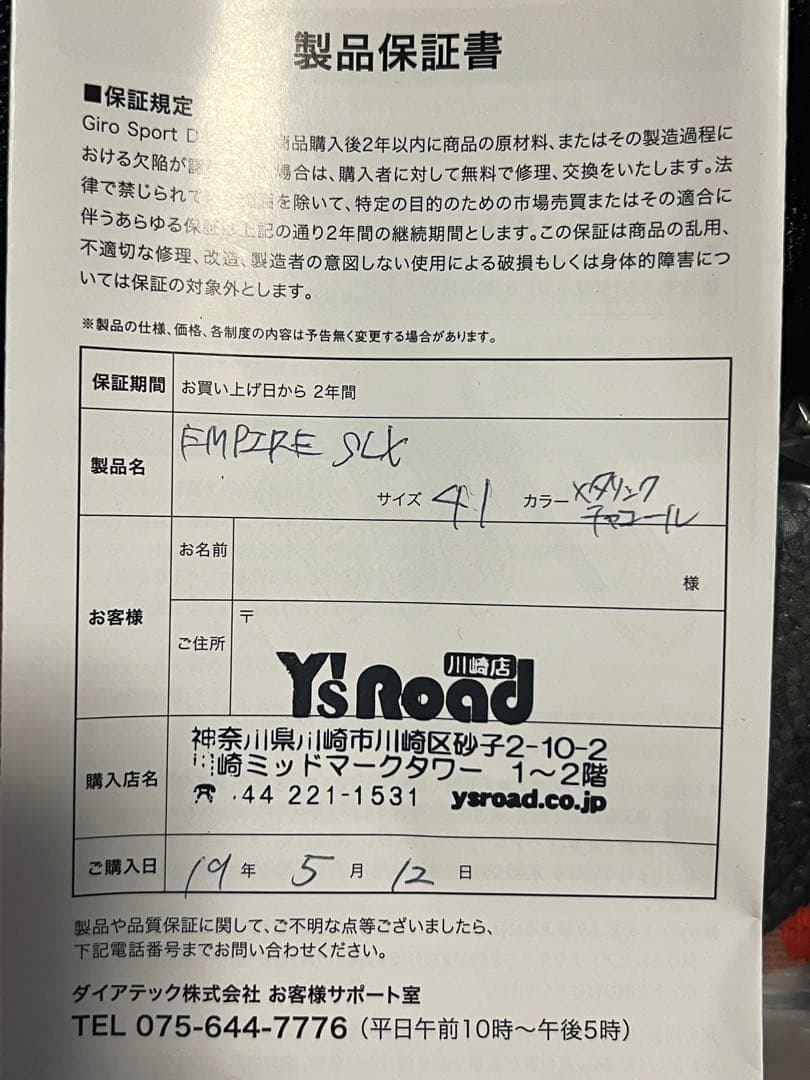 製品保証書
■保証規定
Giro Sport D 商品購入後2年以内に商品の原材料、またはその製造過程に
おける欠陥が 場合は、購入者に対して無料で修理、交換をいたします。法
律で禁じられて を除いて、特定の目的のための市場売買またはその適合に
伴うあらゆる保証 上記の通り2年間の継続期間とします。この保証は商品の乱用、
不適切な修理、改造、製造者の意図しない使用による破損もしくは身体的障害につ
いては保証の対象外とします。
※製品の仕様、価格、各制度の内容は予告無く変更する場合があります。
保証期間 お買い上げ日から 2年間
製品名 EMPIRE SLX
サイズ 41 カラー メタリック
チャコール
お客様 お名前 様
ご住所 〒
Y'sRoad 川崎店
購入店名 神奈川県川崎市川崎区砂子2-10-2
崎ミッドマークタワー 1〜2階
☎ 44 221-1531 ysroad.co.jp
ご購入日 19 年 5 月 12 日
製品や品質保証に関して、ご不明な点等ございましたら、
下記電話番号までお問い合わせください。
ダイアテック株式会社 お客様サポート室
TEL 075-644-7776（平日午前10時〜午後5時）